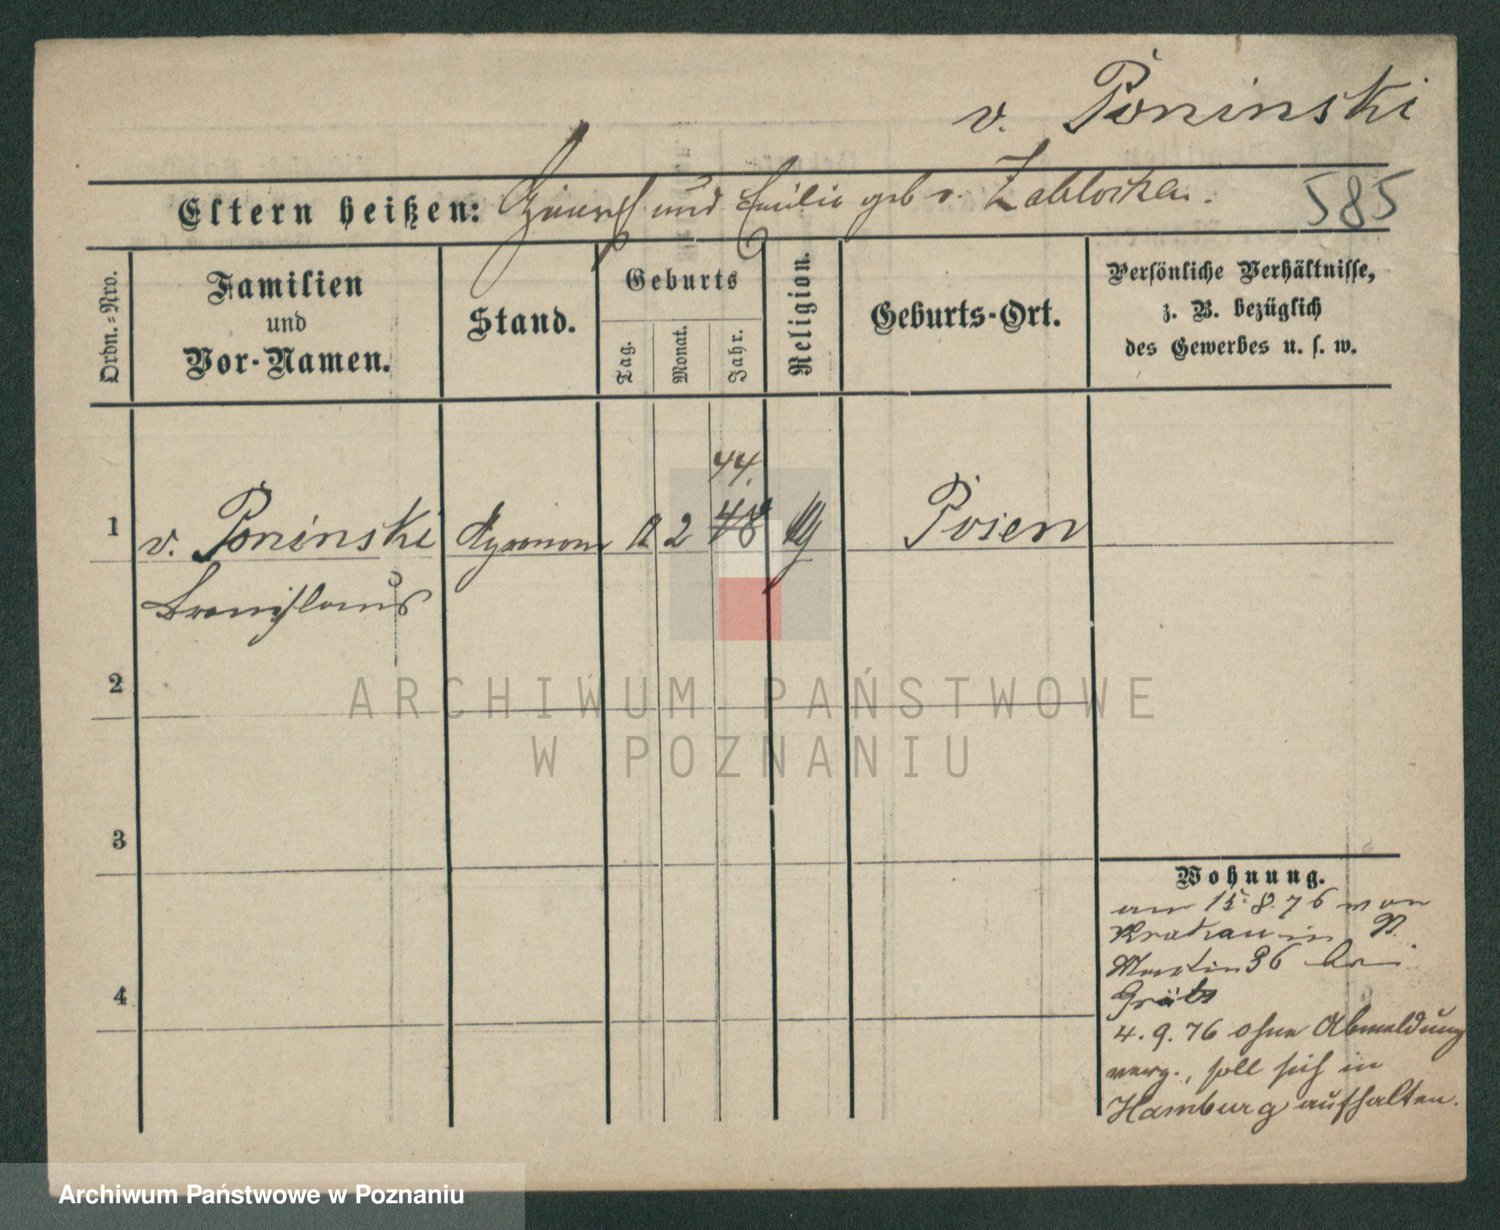 v. Poninski
Eltern heißen: und Emilie geb v. Zablocka.
585
Ordn.-Nro.
Familien
und
Vor-Namen.
Stand.
Geburts
Tag.
Monat.
Jahr.
Religion.
Geburts-Ort.
Persönliche Verhältnisse,
z. B. bezüglich
des Gewerbes u. s. w.
44.
1 v. Poninski 2 48 Posen
Bronislaus
2
ARCHIWUM PAŃSTWOWE
W POZNANIU
3
4
Wohnung.
am 15.8.76 von
Krakau in St.
Martin 36 bei
4.9.76 ohne Abmeldung
verz., soll sich in
Hamburg aufhalten.
Archiwum Państwowe w Poznaniu